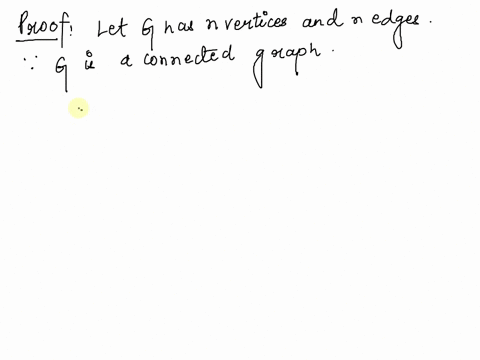 Proof: Let G has n vertices and n edges.
∵ G is a connected graph.